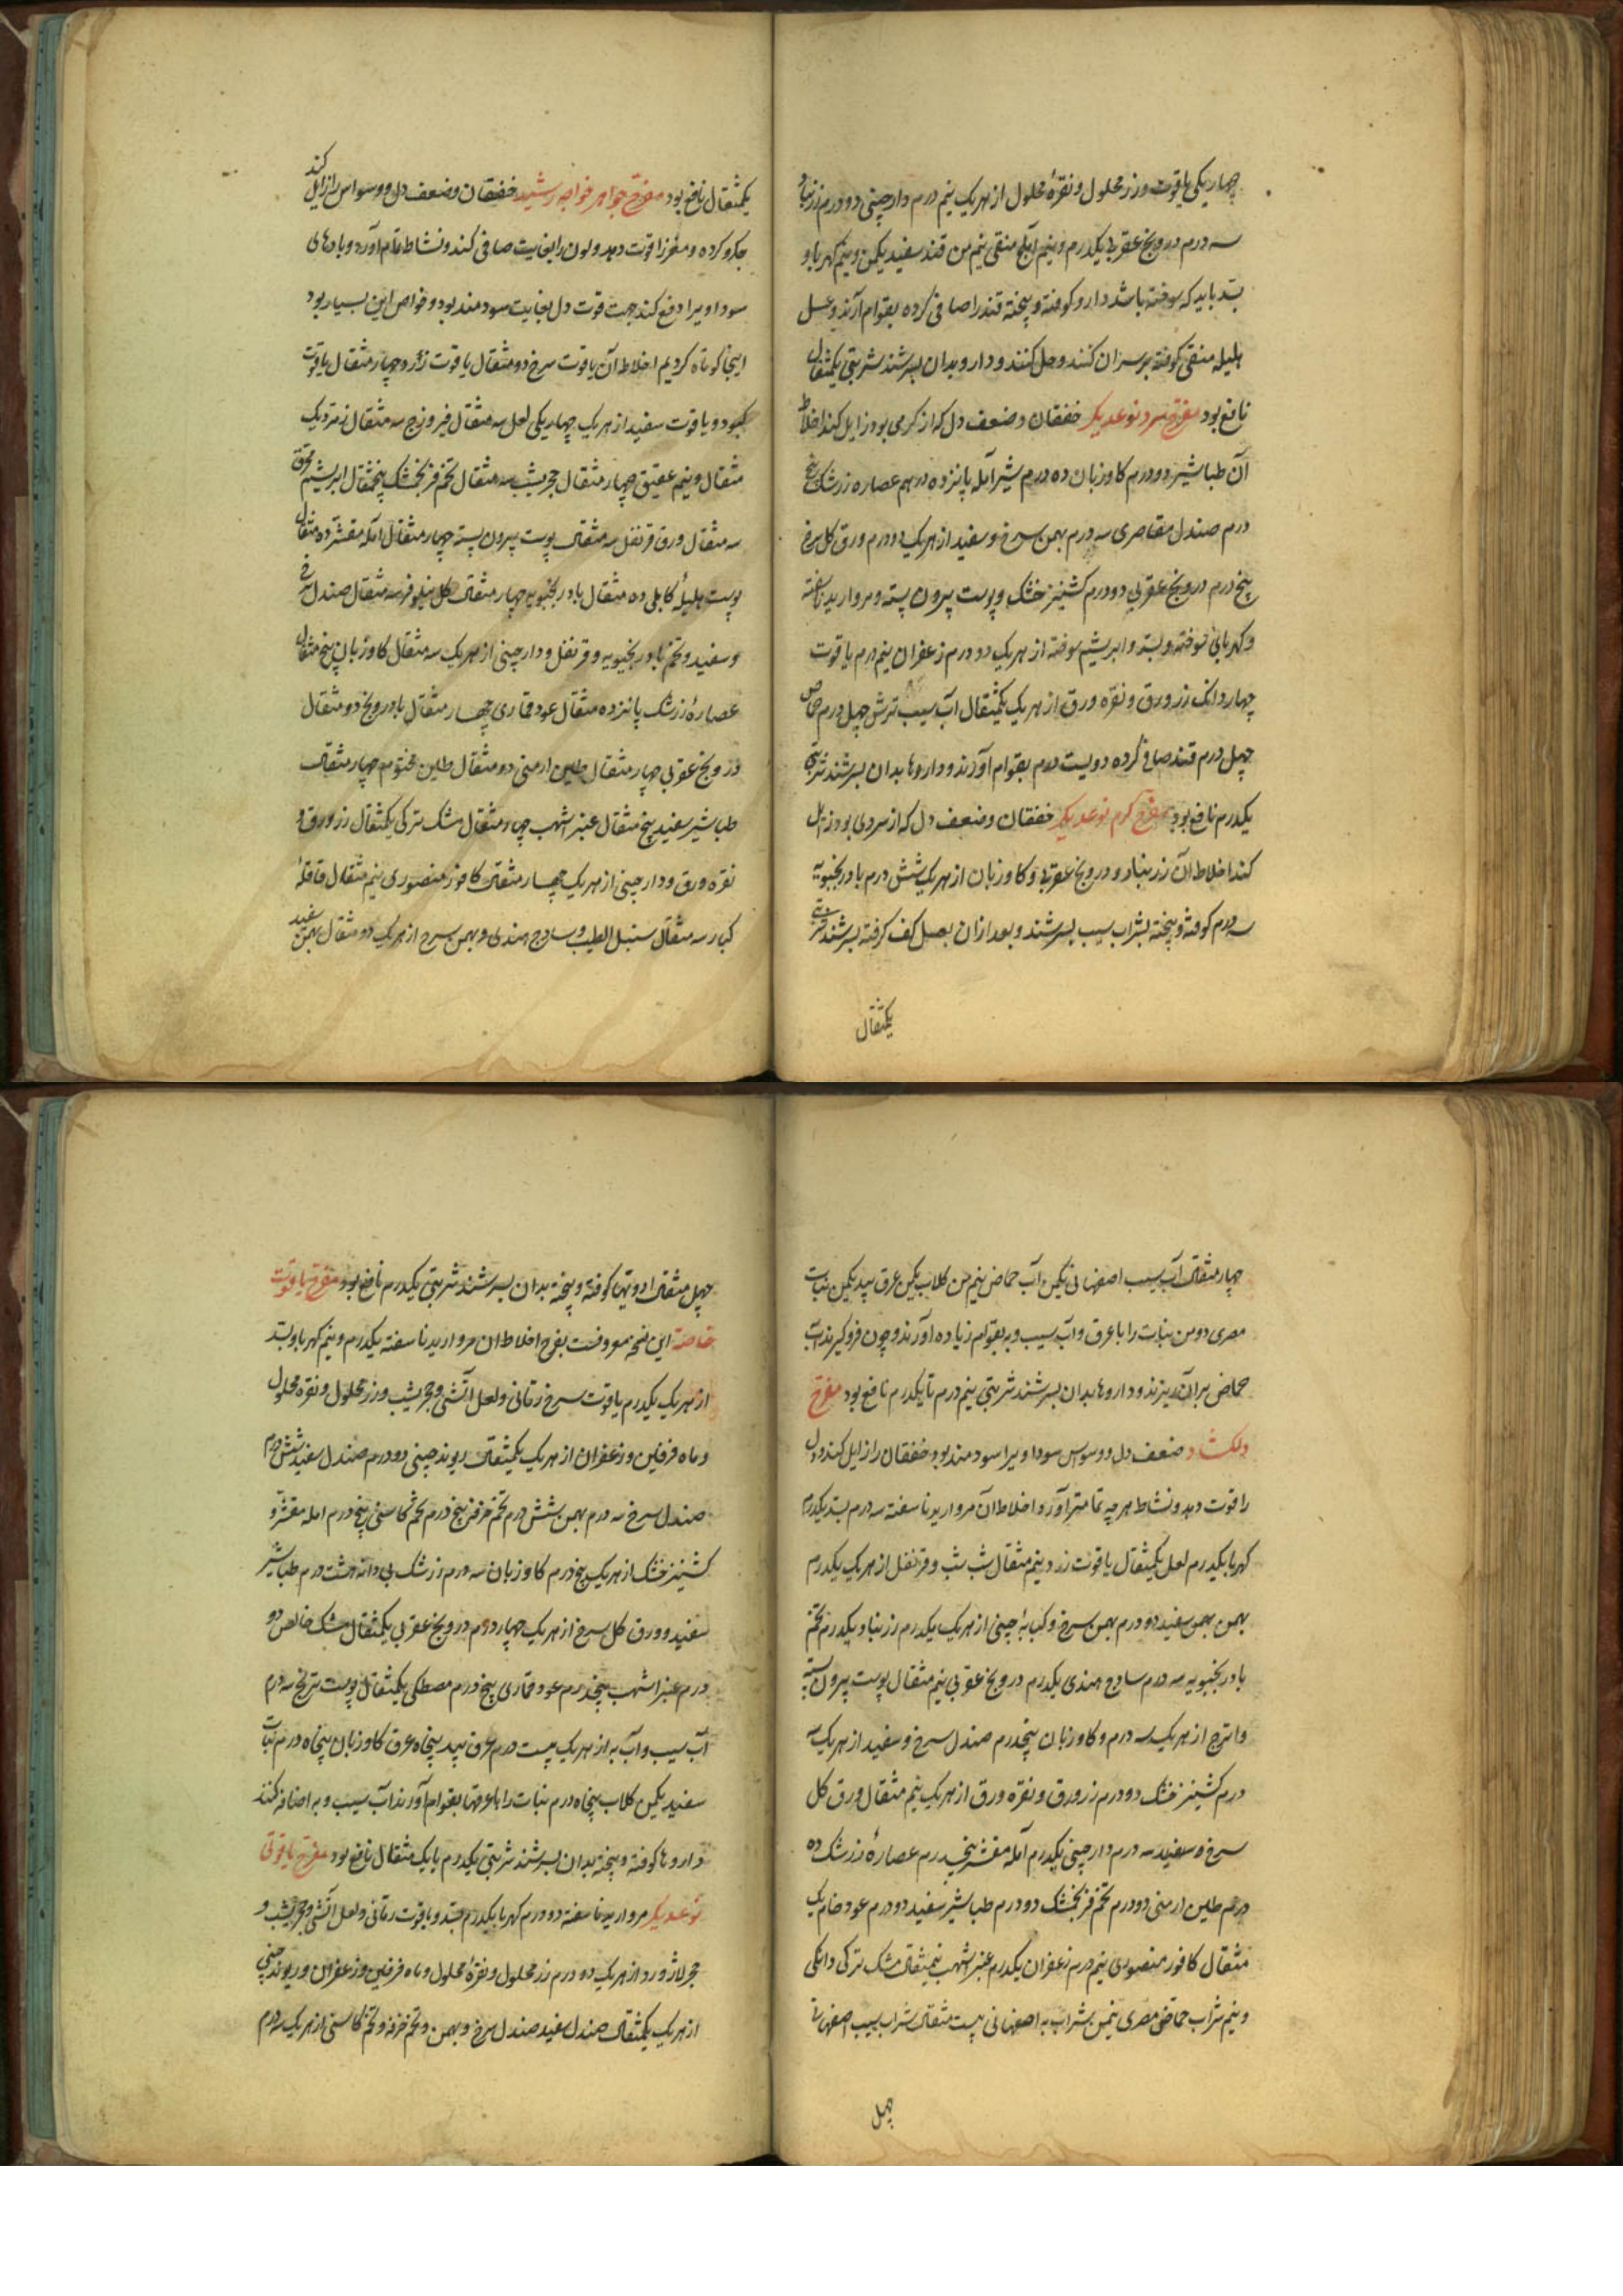 چهار یکی یاقوت و زر محلول و نقرهٔ محلول از هر یک نیم درم دارچینی دو درم زرنباد
سه درم درونج عقربی یکدرم و نیم آملج منقی نیم من قند سفید یکمن و نیم کهربا و
بسد باید که سوخته باشد دارو کوفته و بیخته قند را صافی کرده بقوام آرند و عسل
هلیله منقی کوفته بر سر آن کنند و حل کنند و دارو بدان بسرشند شربتی یکمثقال
نافع بود مفرح سرد نوعدیکر خفقان و ضعف دل که از کرمی بود زایل کند اخلاط
آن طباشیر دو درم کاوزبان ده درم شیر آمله پانزده درهم عصاره زرشک پنج
درم صندل مقاصری سه درم بهمن سرخ و سفید از هر یک دو درم ورق کل سرخ
پنج درم درونج عقربی دو درم کشنیز خشک و پوست پیرون پسته و مروارید ناسفته
و کهربای سوخته و بسد و ابریشم سوخته از هر یک دو درم زعفران نیم درم یاقوت
چهار دانک زر ورق و نقره ورق از هر یک یکمثقال آب سیب ترش چهل درم حماض
چهل درم قند صافی کرده دویست درم بقوام آورند و داروها بدان بسرشند شربتی
یکدرم نافع بود مفرح کرم نوعدیکر خفقان و ضعف دل که از سردی بود زایل
کند اخلاط آن زرنباد و درونج عقربی و کاوزبان از هر یک شش درم بادرنجبویه
سه درم کوفته و بیخته بشراب سیب بسرشند و بعد از آن بعسل کف کرفته بسرشند شربتی
یکمثقال
یکمثقال نافع بود مفرح جواهر خواجه رشید خفقان و ضعف دل و وسواس را زایل کند
جکر و کرده و مغز را قوت دهد و لون را بغایت صافی کند و نشاط تمام آورد و بادهای
سوداویرا دفع کند جهت قوت دل بغایت سودمند بود و خواص این بسیار بود
اینجا کوتاه کردیم اخلاط آن یاقوت سرخ دو مثقال یاقوت زرد چهار مثقال یاقوت
کبود و یاقوت سفید از هر یک چهار یکی لعل سه مثقال فیروزج سه مثقال زمرد یک
مثقال و نیم عقیق چهار مثقال حجر یشب سه مثقال تخم فرنجمشک پنجمثقال ابریشم محرق
سه مثقال ورق قرنفل سه مثقال پوست پیرون پسته چهار مثقال آمله مقشر ده مثقال
پوست هلیلهٔ کابلی ده مثقال بادرنجبویه چهار مثقال کل نیلوفر سه مثقال صندل سرخ
و سفید و تخم بادرنجبویه و قرنفل و دارچینی از هر یک سه مثقال کاوزبان پنج مثقال
عصارهٔ زرشک پانزده مثقال عود قماری چهار مثقال بادرونج دو مثقال
درونج عقربی چهار مثقال طین ارمنی دو مثقال طین مختوم چهار مثقال
طباشیر سفید پنج مثقال عنبر اشهب چهار مثقال مشک ترکی یکمثقال زر ورق و
نقره ورق و دارچینی از هر یک چهار مثقال کافور منصوری نیم مثقال قاقلهٔ
کبار سه مثقال سنبل الطیب و ساذج هندی و بهمن سرخ از هر یک دو مثقال بهمن سفید
چهار مثقال آب سیب اصفهانی یکمن آب حماض نیم من کلاب یکمن عرق بید یکمن نبات
مصری دو من نبات را با عرق و آب سیب و به بقوام زیاده آورند و چون فروکیرند آب
حماض بر آن ریزند و داروها بدان بسرشند شربتی نیم درم تا یکدرم نافع بود مفرح
دلکشاد ضعف دل و وسوس سوداویرا سودمند بود و خفقان را زایل کند و دل
را قوت دهد و نشاط هرچه تمامتر آورد اخلاط آن مروارید ناسفته سه درم بسد یکدرم
کهربا یکدرم لعل یکمثقال یاقوت زرد و نیم مثقال شب شب و قرنفل از هر یک یکدرم
بهمن بهمن سفید دو درم بهمن سرخ و کبابهٔ چینی از هر یک یکدرم زرنباد یکدرم تخم
بادرنجبویه سه درم ساذج هندی یکدرم درونج عقربی نیم مثقال پوست پیرون پسته
و اترج از هر یک سه درم و کاوزبان پنجدرم صندل سرخ و سفید از هر یک سه
درم کشنیز خشک دو درم زر ورق و نقره ورق از هر یک نیم مثقال ورق کل
سرخ و سفید سه درم دارچینی یکدرم آمله مقشر پنجدرم عصارهٔ زرشک ده
درم طین ارمنی دو درم تخم فرنجمشک دو درم طباشیر سفید دو درم عود خام یک
مثقال کافور منصوری نیم درم زعفران یکدرم عنبر اشهب نیمثقال مشک ترکی دانکی
و نیم شراب حماض مصری نیمن شراب به اصفهانی بیست مثقال شراب سیب اصفهانی
چهل
چهل مثقال ادویتها کوفته و بیخته بدان بسرشند شربتی یکدرم نافع بود مفرح یاقوت
خاصه این نسخه معروفست بفرح اخلاط ان مروارید ناسفته یکدرم و نیم کهربا و بسد
از هر یک یکدرم یاقوت سرخ رمانی و لعل آتشی و حجر یشب و زر محلول و نقره محلول
و ماه فرفین و زعفران از هر یک یکمثقال ریوند چینی دو درم صندل سفید شش درم
صندل سرخ سه درم بهمن شش درم تخم خرفه پنج درم تخم کاسنی پنج درم امله مقشر و
کشنیز خشک از هر یک پنج درم کاوزبان سه درم زرشک بی دانه هشت درم طباشیر
سفید و ورق کل سرخ از هر یک چهار درم درونج عقربی یکمثقال مشک خالص دو
درم عنبر اشهب پنجدرم عود قماری پنج درم مصطکی یکمثقال پوست ترنج سه درم
آب سیب و آب به از هر یک بیست درم عرق بید پنجاه عرق کاوزبان پنجاه درم نبات
سفید یکمن کلاب پنجاه درم نبات را با عرقها بقوام آورند آب سیب و به اضافه کنند
داروها کوفته و بیخته بدان بسرشند شربتی یکدرم یا یک مثقال نافع بود مفرح یاقوتی
نوعدیکر مروارید ناسفته دو درم کهربا یکدرم بسد و یاقوت رمانی و لعل آتشی و حجر یشب و
حجر لاژورد از هر یک دو درم زر محلول و نقرهٔ محلول و ماه فرفین و زعفران و ریوند چینی
از هر یک یکمثقال صندل سفید صندل سرخ و بهمن و تخم خرفه و تخم کاسنی از هر یک سه درم